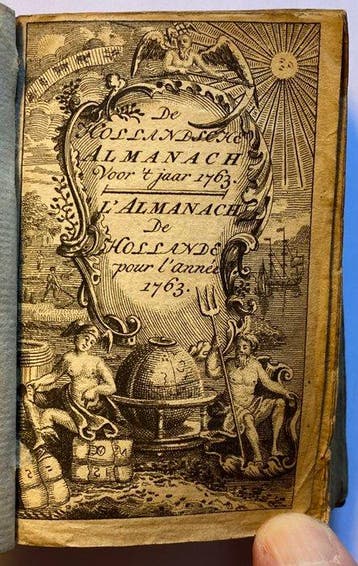 De
HOLLANDSCHE
ALMANACH
Voor 't jaar 1763.
L'ALMANACH
De
HOLLANDE
pour l'année
1763.